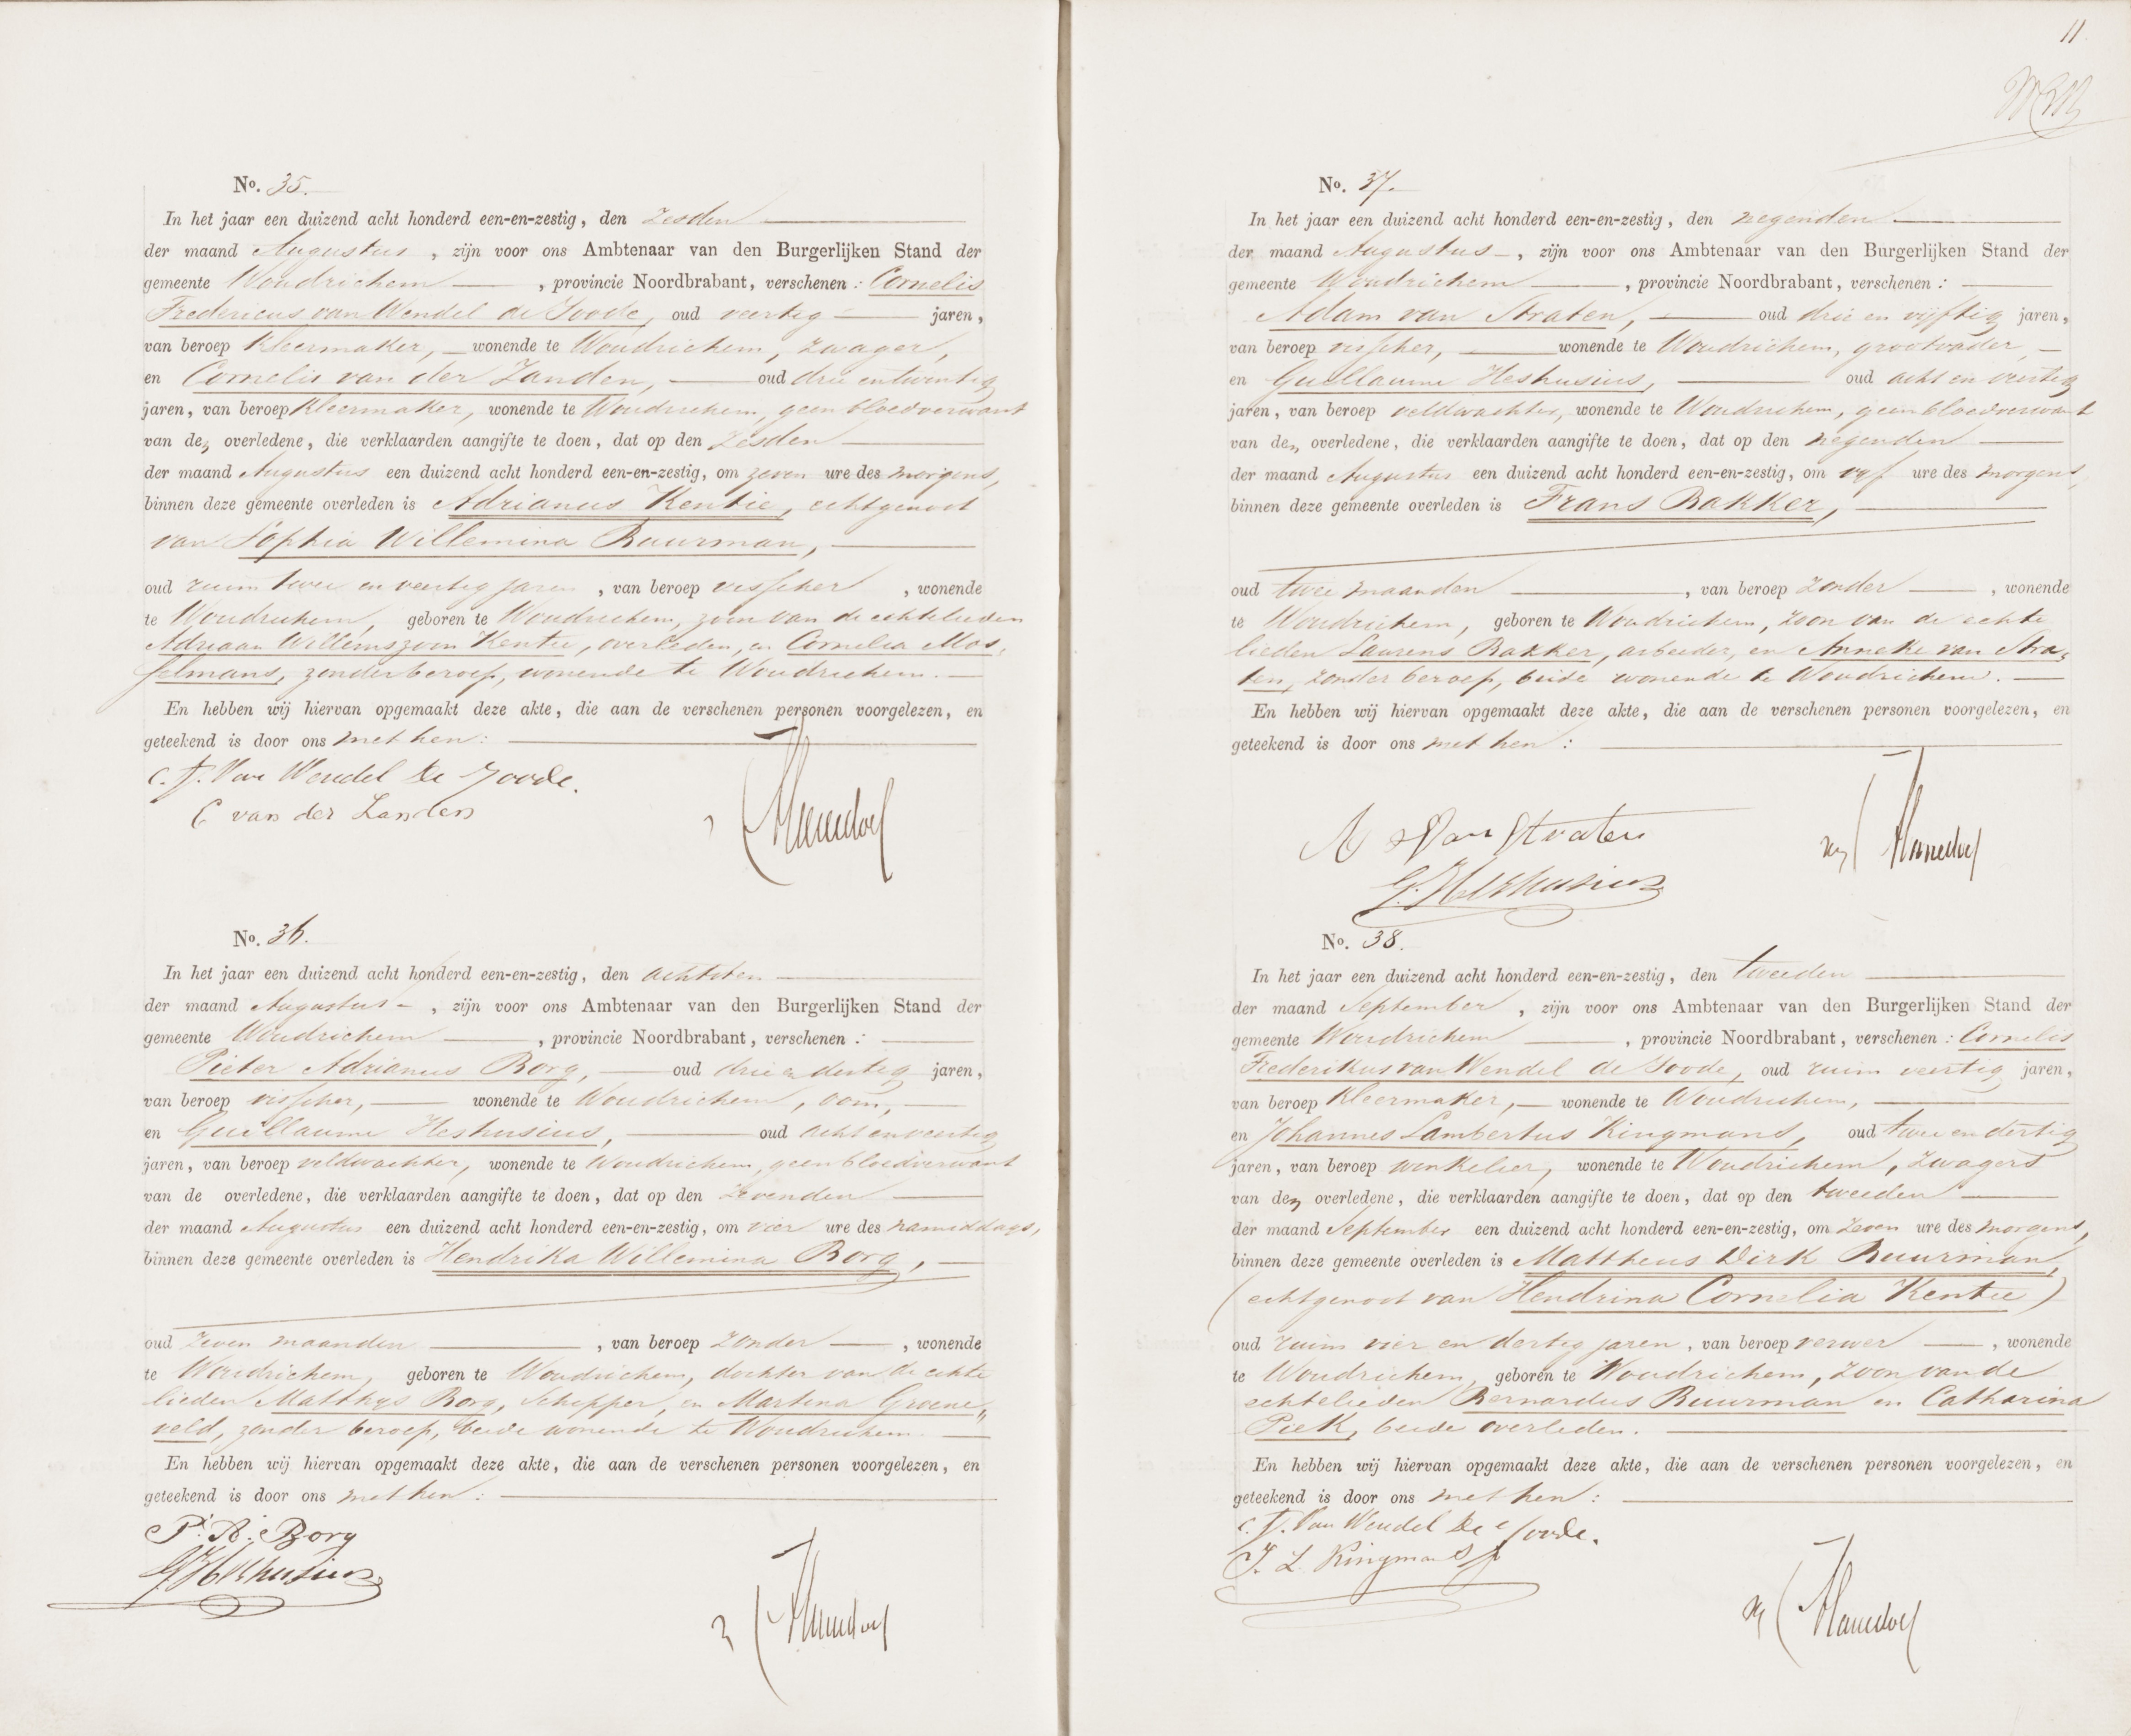 No. 35.
In het jaar een duizend acht honderd een-en-zestig, den zesden
der maand Augustus, zijn voor ons Ambtenaar van den Burgerlijken Stand der
gemeente Woudrichem, provincie Noordbrabant, verschenen: Cornelis
Fredericus van Wendel de Joode, oud veertig jaren,
van beroep kleermaker, wonende te Woudrichem, zwager,
en Cornelis van der Zanden, oud drie en twintig
jaren, van beroep kleermaker, wonende te Woudrichem, geen bloedverwant
van den overledene, die verklaarden aangifte te doen, dat op den zesden
der maand Augustus een duizend acht honderd een-en-zestig, om zeven ure des morgens,
binnen deze gemeente overleden is Adrianus Kentie, echtgenoot
van Sophia Willemina Buurman,
oud ruim twee en veertig jaren, van beroep visscher, wonende
te Woudrichem, geboren te Woudrichem, zoon van de echtelieden
Adriaan Willemszoon Kentie, overleden, en Cornelia Mos-
selmans, zonder beroep, wonende te Woudrichem.
En hebben wij hiervan opgemaakt deze akte, die aan de verschenen personen voorgelezen, en
geteekend is door ons met hen:
C. F. Van Wendel De Joode.
C van der Zanden
No. 36.
In het jaar een duizend acht honderd een-en-zestig, den achtsten
der maand Augustus, zijn voor ons Ambtenaar van den Burgerlijken Stand der
gemeente Woudrichem, provincie Noordbrabant, verschenen:
Pieter Adrianus Borg, oud drie en dertig jaren,
van beroep visscher, wonende te Woudrichem, oom,
en Guillaume Heshusius, oud acht en veertig
jaren, van beroep veldwachter, wonende te Woudrichem, geen bloedverwant
van de overledene, die verklaarden aangifte te doen, dat op den zevenden
der maand Augustus een duizend acht honderd een-en-zestig, om vier ure des namiddags,
binnen deze gemeente overleden is Hendrika Willemina Borg,
oud zeven maanden, van beroep zonder, wonende
te Woudrichem, geboren te Woudrichem, dochter van de echte
lieden Matthys Borg, Schipper, en Martina Groene„
veld, zonder beroep, beide wonende te Woudrichem.
En hebben wij hiervan opgemaakt deze akte, die aan de verschenen personen voorgelezen, en
geteekend is door ons met hen:
P. A. Borg
G. Heshusius
11
No. 37.
In het jaar een duizend acht honderd een-en-zestig, den negenden
der maand Augustus, zijn voor ons Ambtenaar van den Burgerlijken Stand der
gemeente Woudrichem, provincie Noordbrabant, verschenen:
Adam van Straten, oud drie en vijftig jaren,
van beroep visscher, wonende te Woudrichem, grootvader
en Guillaume Heshusius, oud acht en veertig
jaren, van beroep veldwachter, wonende te Woudrichem, geen bloedverwant
van den overledene, die verklaarden aangifte te doen, dat op den negenden
der maand Augustus een duizend acht honderd een-en-zestig, om vijf ure des morgens,
binnen deze gemeente overleden is Frans Bakker,
oud twee maanden, van beroep zonder, wonende
te Woudrichem, geboren te Woudrichem, zoon van de echte
lieden Laurens Bakker, arbeider, en Anneke van Stra-
ten, zonder beroep, beide wonende te Woudrichem.
En hebben wij hiervan opgemaakt deze akte, die aan de verschenen personen voorgelezen, en
geteekend is door ons met hen:
A Van Straten
G. Heshusius
No. 38.
In het jaar een duizend acht honderd een-en-zestig, den tweeden
der maand September, zijn voor ons Ambtenaar van den Burgerlijken Stand der
gemeente Woudrichem, provincie Noordbrabant, verschenen: Cornelis
Frederikus van Wendel de Joode, oud ruim veertig jaren,
van beroep kleermaker, wonende te Woudrichem,
en Johannes Lambertus Kingmans, oud twee en dertig
jaren, van beroep winkelier, wonende te Woudrichem, zwagers
van den overledene, die verklaarden aangifte te doen, dat op den tweeden
der maand September een duizend acht honderd een-en-zestig, om zeven ure des morgens,
binnen deze gemeente overleden is Mattheus Dirk Buurman,
(echtgenoot van Hendrina Cornelia Kentie)
oud ruim vier en dertig jaren, van beroep verwer, wonende
te Woudrichem, geboren te Woudrichem, zoon van de
echtelieden Bernardus Buurman en Catharina
Piek, beide overleden.
En hebben wij hiervan opgemaakt deze akte, die aan de verschenen personen voorgelezen, en
geteekend is door ons met hen:
C. F. Van Wendel De Joode.
J. L. Kingmans